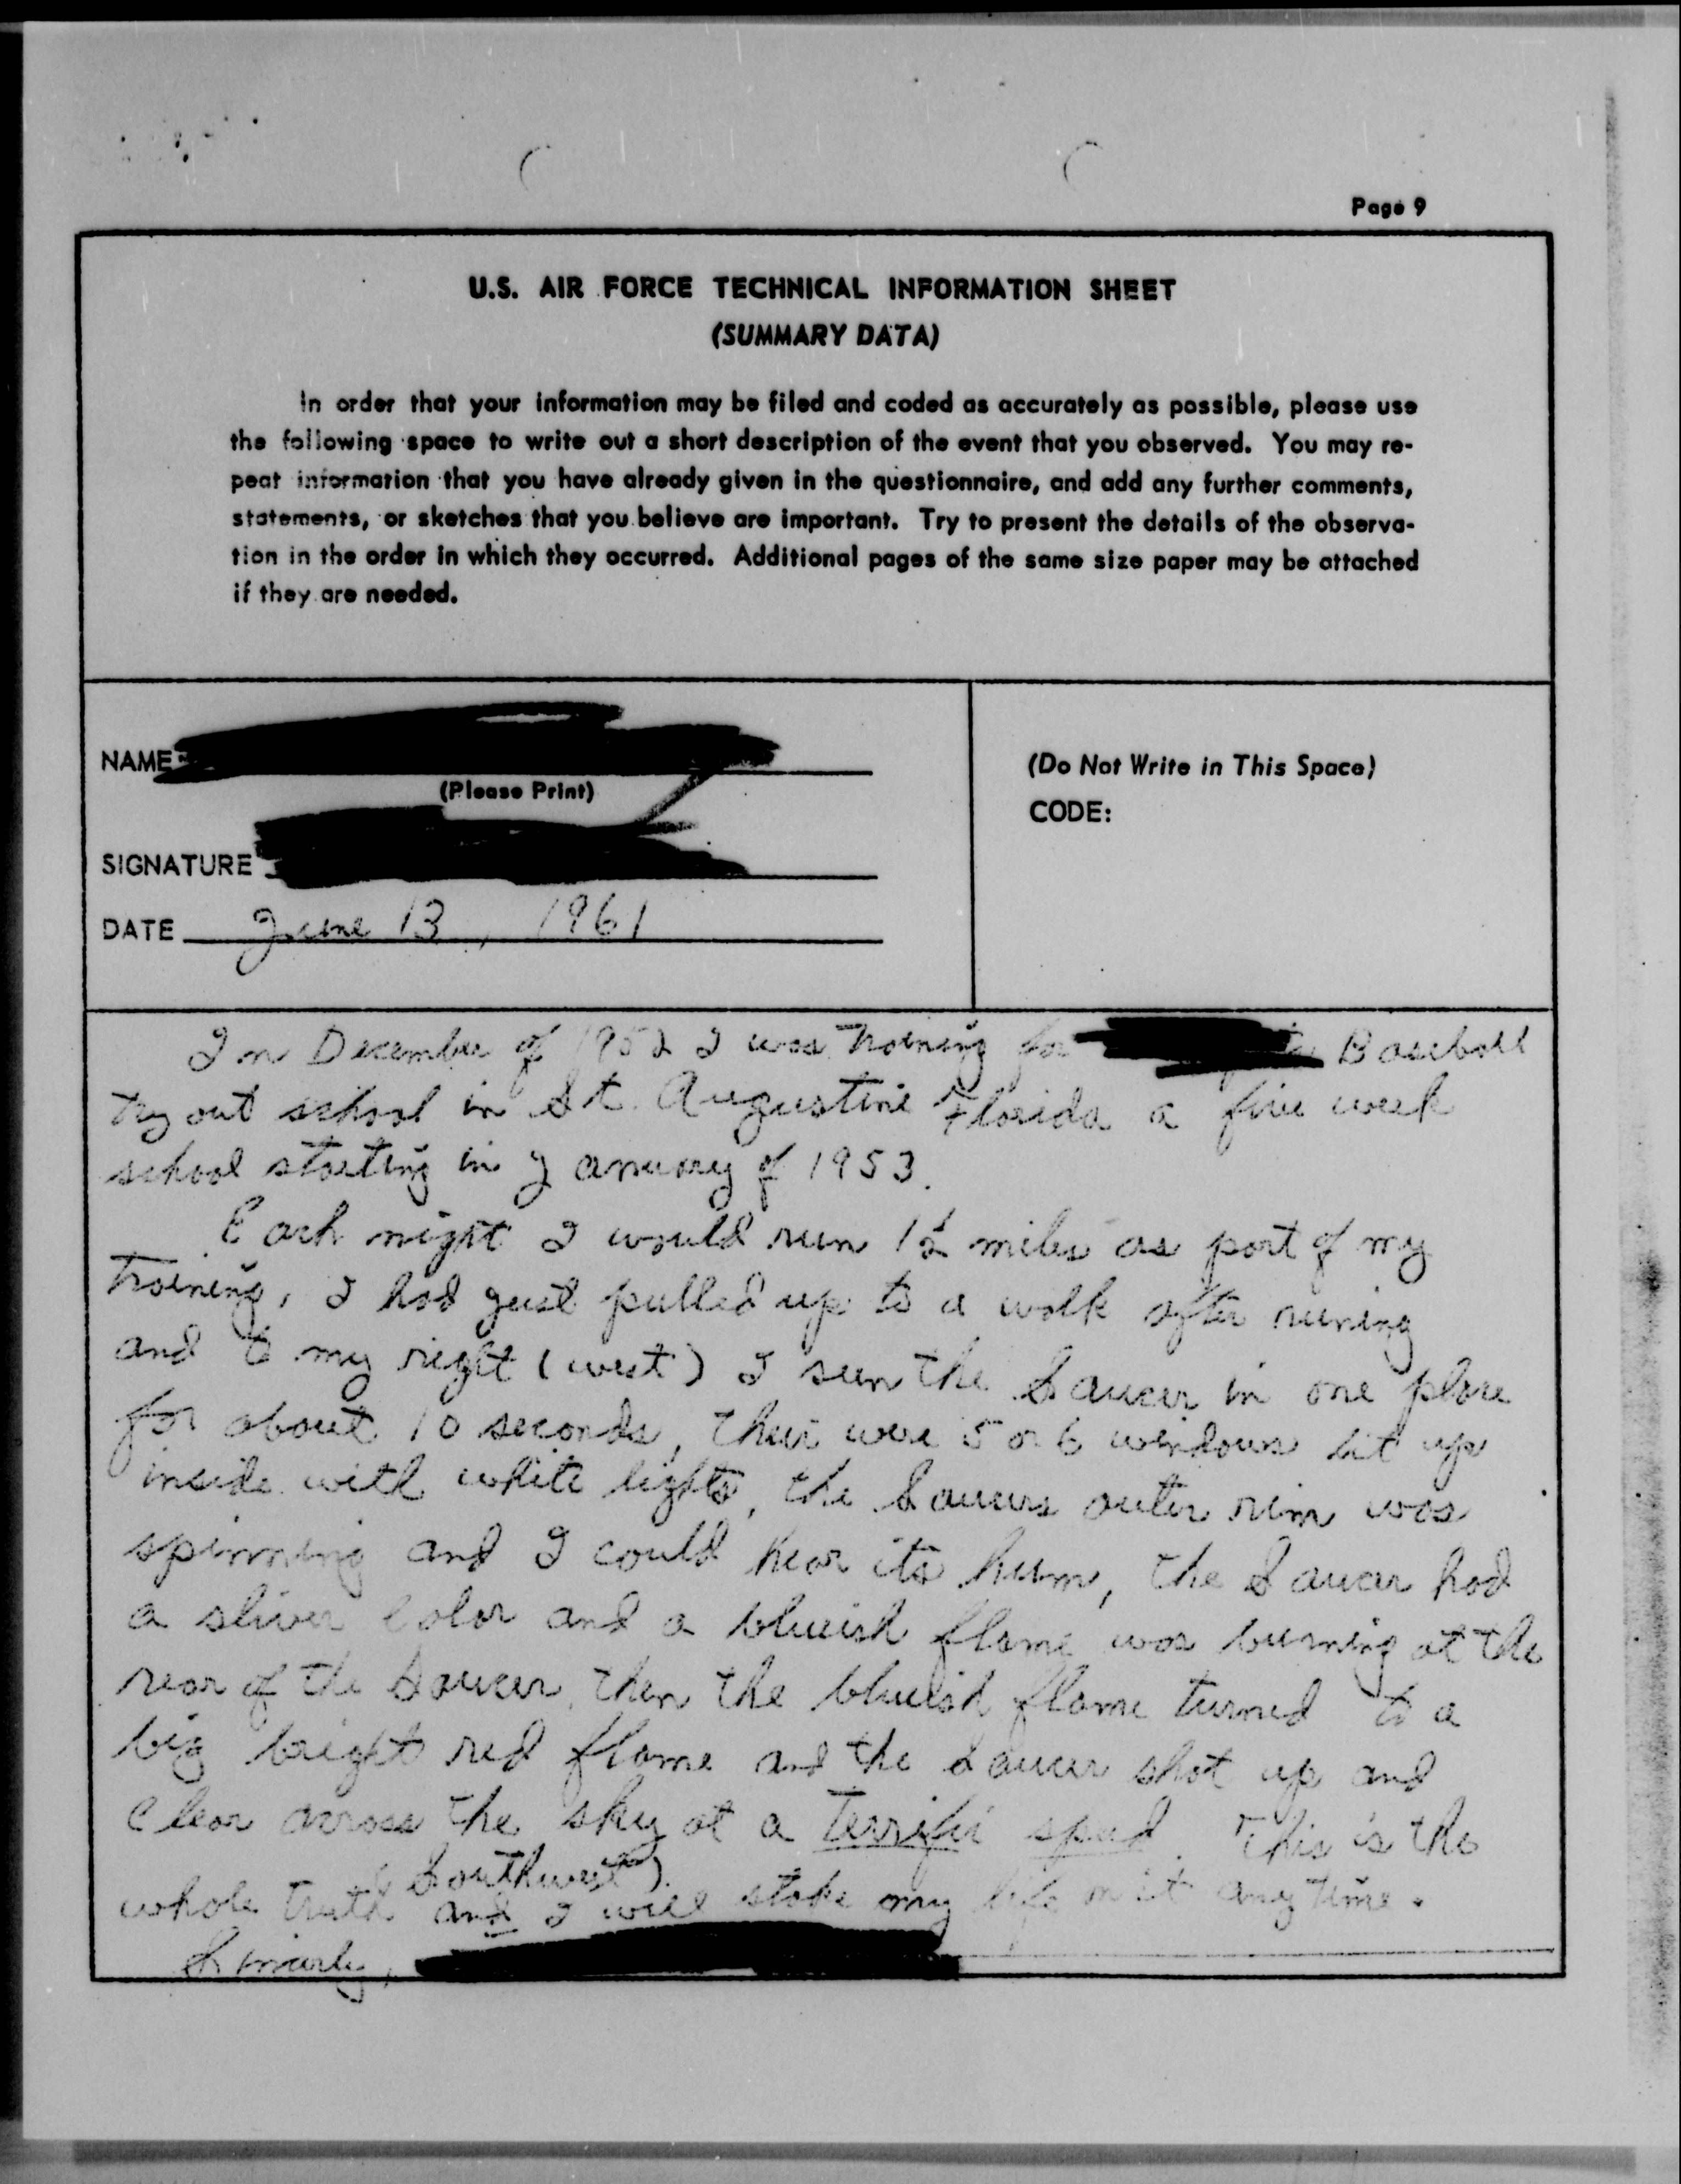 Page 9
U.S. AIR FORCE TECHNICAL INFORMATION SHEET
(SUMMARY DATA)
In order that your information may be filed and coded as accurately as possible, please use
the following space to write out a short description of the event that you observed. You may re-
peat information that you have already given in the questionnaire, and add any further comments,
statements, or sketches that you believe are important. Try to present the details of the observa-
tion in the order in which they occurred. Additional pages of the same size paper may be attached
if they are needed.
NAME
(Please Print)
SIGNATURE
DATE June 13, 1961
(Do Not Write in This Space)
CODE:
In December of 1952 I was training for Baseball
try out school in St. Augustine Florida a five week
school starting in January of 1953.
Each night I would run 1½ miles as part of my
training, I had just pulled up to a walk after runing
and to my right (west) I seen the Saucer in one place
for about 10 seconds, their were 5 or 6 windows lit up
inside with white lights, the Saucers outer rim was
spinning and I could hear its hum, the Saucer had
a sliver color and a blueish flame was burning at the
rear of the Saucer, then the blueish flame turned to a
big bright red flame and the Saucer shot up and
clear across the sky at a terrific speed. This is the
(Southwest)
whole truth and I will stake my life on it any time.
Sincerly,